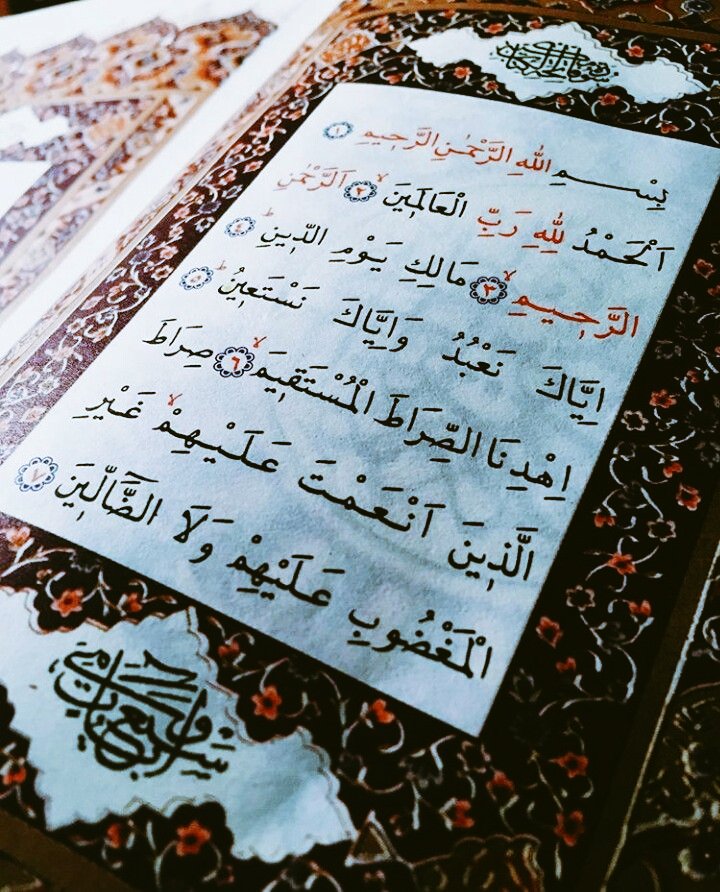 بِسْــــمِ اللهِ الرَّحْمٰنِ الرَّحٖيمِ ١
اَلْحَمْدُ لِلهِ رَبِّ الْعَالَمٖينَۙ ٢ اَلرَّحْمٰنِ
الرَّحٖيمِۙ ٣ مَالِكِ يَوْمِ الدّٖينِؕ ٤
اِيَّاكَ نَعْبُدُ وَاِيَّاكَ نَسْتَعٖينُؕ ٥
اِهْدِنَا الصِّرَاطَ الْمُسْتَقٖيمَۙ ٦ صِرَاطَ
الَّذٖينَ اَنْعَمْتَ عَلَيْهِمْۙ غَيْرِ
الْمَغْضُوبِ عَلَيْهِمْ وَلَا الضَّٓالّٖينَ ٧